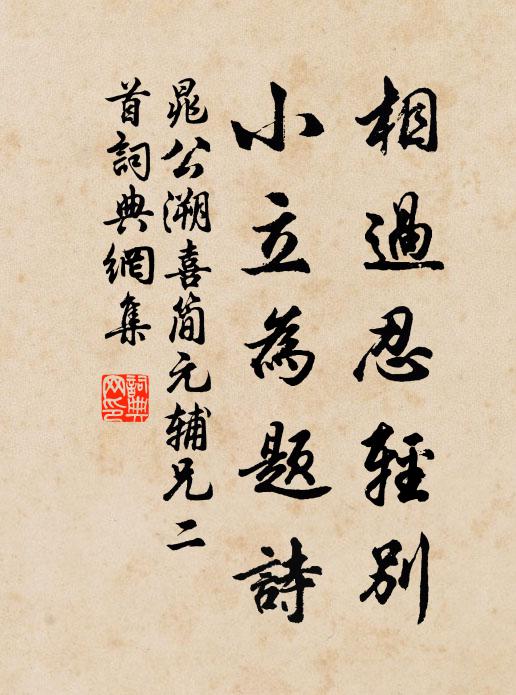 相過忍輕別
小立為題詩
晁公溯喜简元辅兄二
首詞典網集
詞典
网印